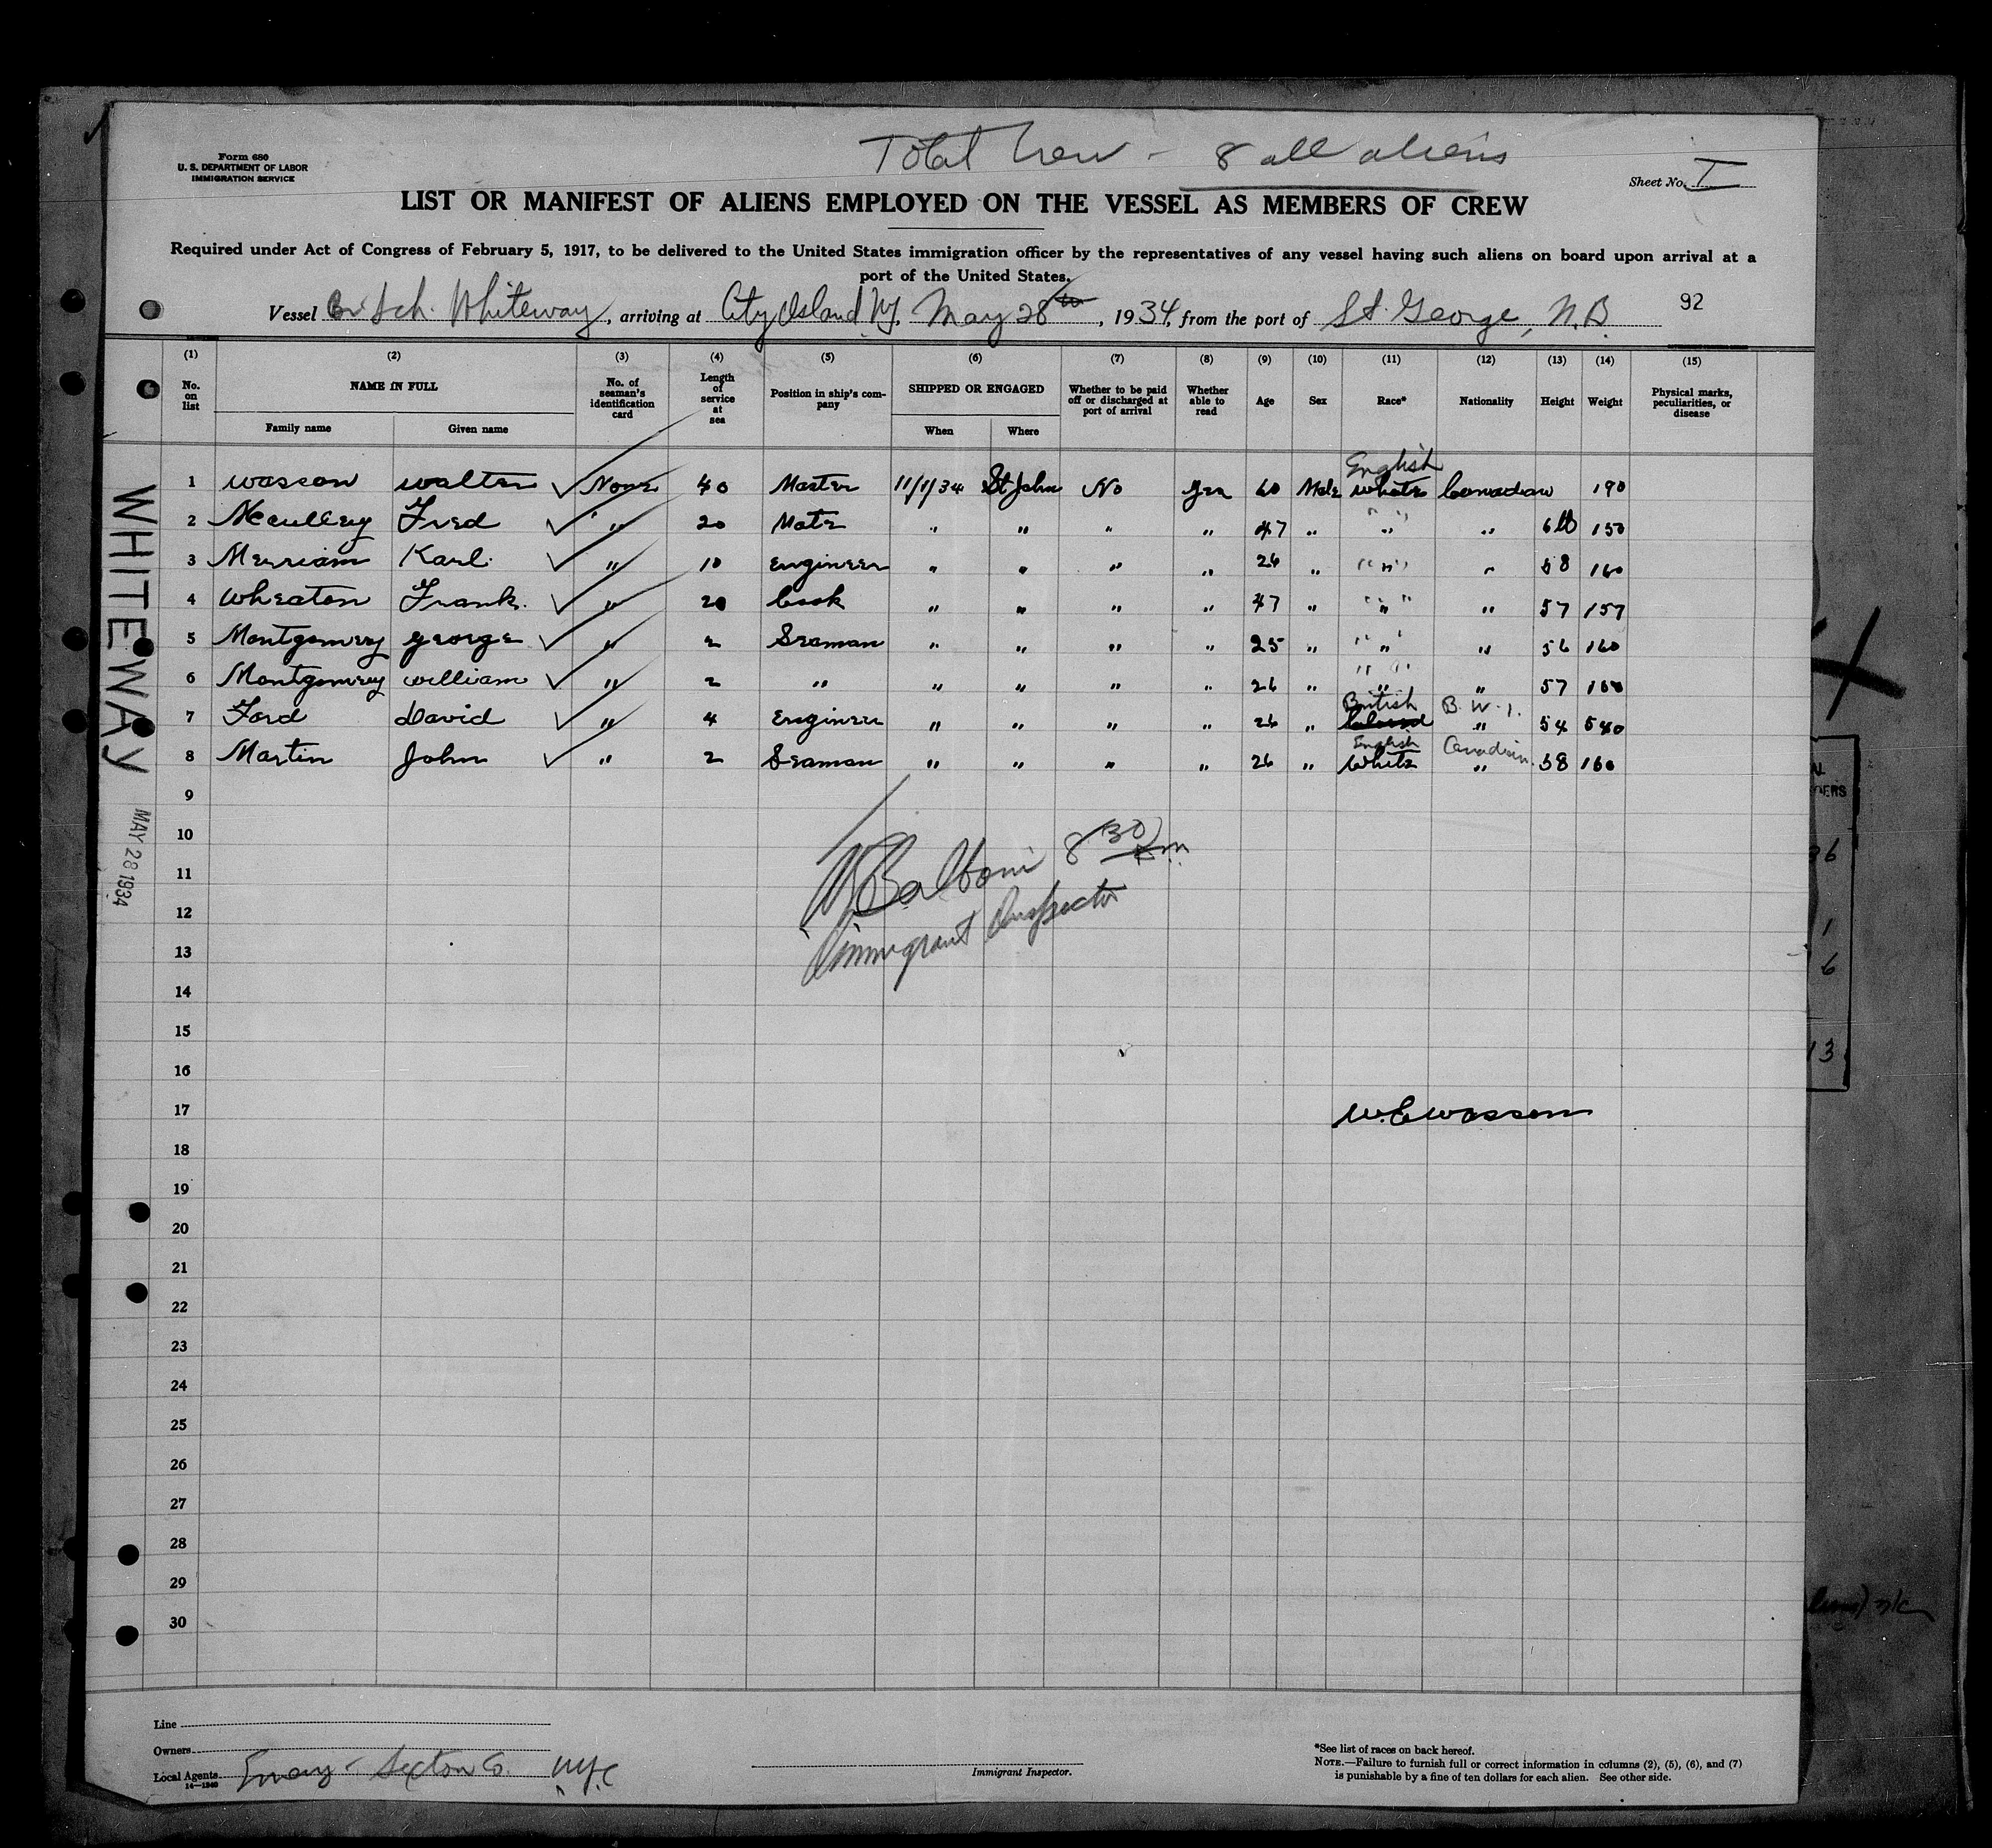 Total Crew - 8 all aliens
Form 680
U. S. DEPARTMENT OF LABOR
IMMIGRATION SERVICE
Sheet No. I
LIST OR MANIFEST OF ALIENS EMPLOYED ON THE VESSEL AS MEMBERS OF CREW
Required under Act of Congress of February 5, 1917, to be delivered to the United States immigration officer by the representatives of any vessel having such aliens on board upon arrival at a
port of the United States.
Vessel Br Sch. Whiteway, arriving at City Island NY, May 28th, 1934, from the port of St. George, N.B. 92
(1) (2) (3) (4) (5) (6) (7) (8) (9) (10) (11) (12) (13) (14) (15)
No. on list NAME IN FULL No. of seaman's identification card Length of service at sea Position in ship's company SHIPPED OR ENGAGED Whether to be paid off or discharged at port of arrival Whether able to read Age Sex Race* Nationality Height Weight Physical marks, peculiarities, or disease
Family name Given name When Where
English
1 Wasson Walter None 40 Master 11/1/34 St John No Yes 60 Male White Canadian 190
2 McCulley Fred " 20 Mate " " " " 47 " " " 6 150
3 Merriam Karl " 10 Engineer " " " " 26 " " " 58 160
4 Wheaton Frank " 20 Cook " " " " 47 " " " 57 157
5 Montgomery George " 2 Seaman " " " " 25 " " " 56 160
6 Montgomery William " 2 " " " " " 26 " " " 57 160
British B.W.I.
7 Ford David " 4 Engineer " " " " 26 " Colored " 54 540
English Canadian
8 Martin John " 2 Seaman " " " " 26 " White " 58 160
9
10
11
12
13
14
15
16
17
18
19
20
21
22
23
24
25
26
27
28
29
30
WHITEWAY
MAY 28 1934
Balboni 8 30
Immigrant Inspector
W.E Wasson
Line
Owners
Local Agents Emery - Sexton Co. NYC
14—1240
Immigrant Inspector.
*See list of races on back hereof.
NOTE.—Failure to furnish full or correct information in columns (2), (5), (6), and (7)
is punishable by a fine of ten dollars for each alien. See other side.